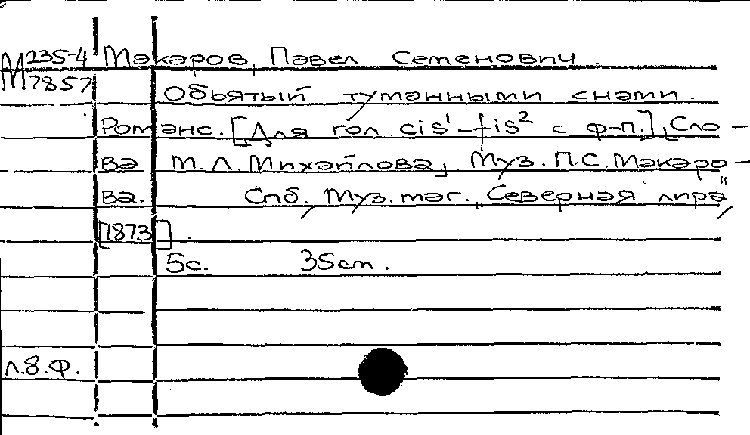 М 235-4 Макаров, Павел Семенович
М 7857
Объятый туманными снами.
Романс. [Для гол cis¹-fis² с ф-п.], Сло-
ва М.Л. Михайлова, Муз. П.С. Макаро-
ва. Спб, Муз. маг. „Северная лира",
[1873].
5с. 35см.
Л.8.Ф.